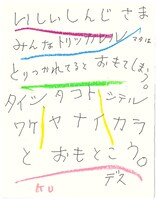 いしいしんじさま
みんなトリツカレル マオは
とりつかれてると おもてしまう。
タイシ タコト シテル
ワケ ヤナイカラ
と おもとこう。
デス